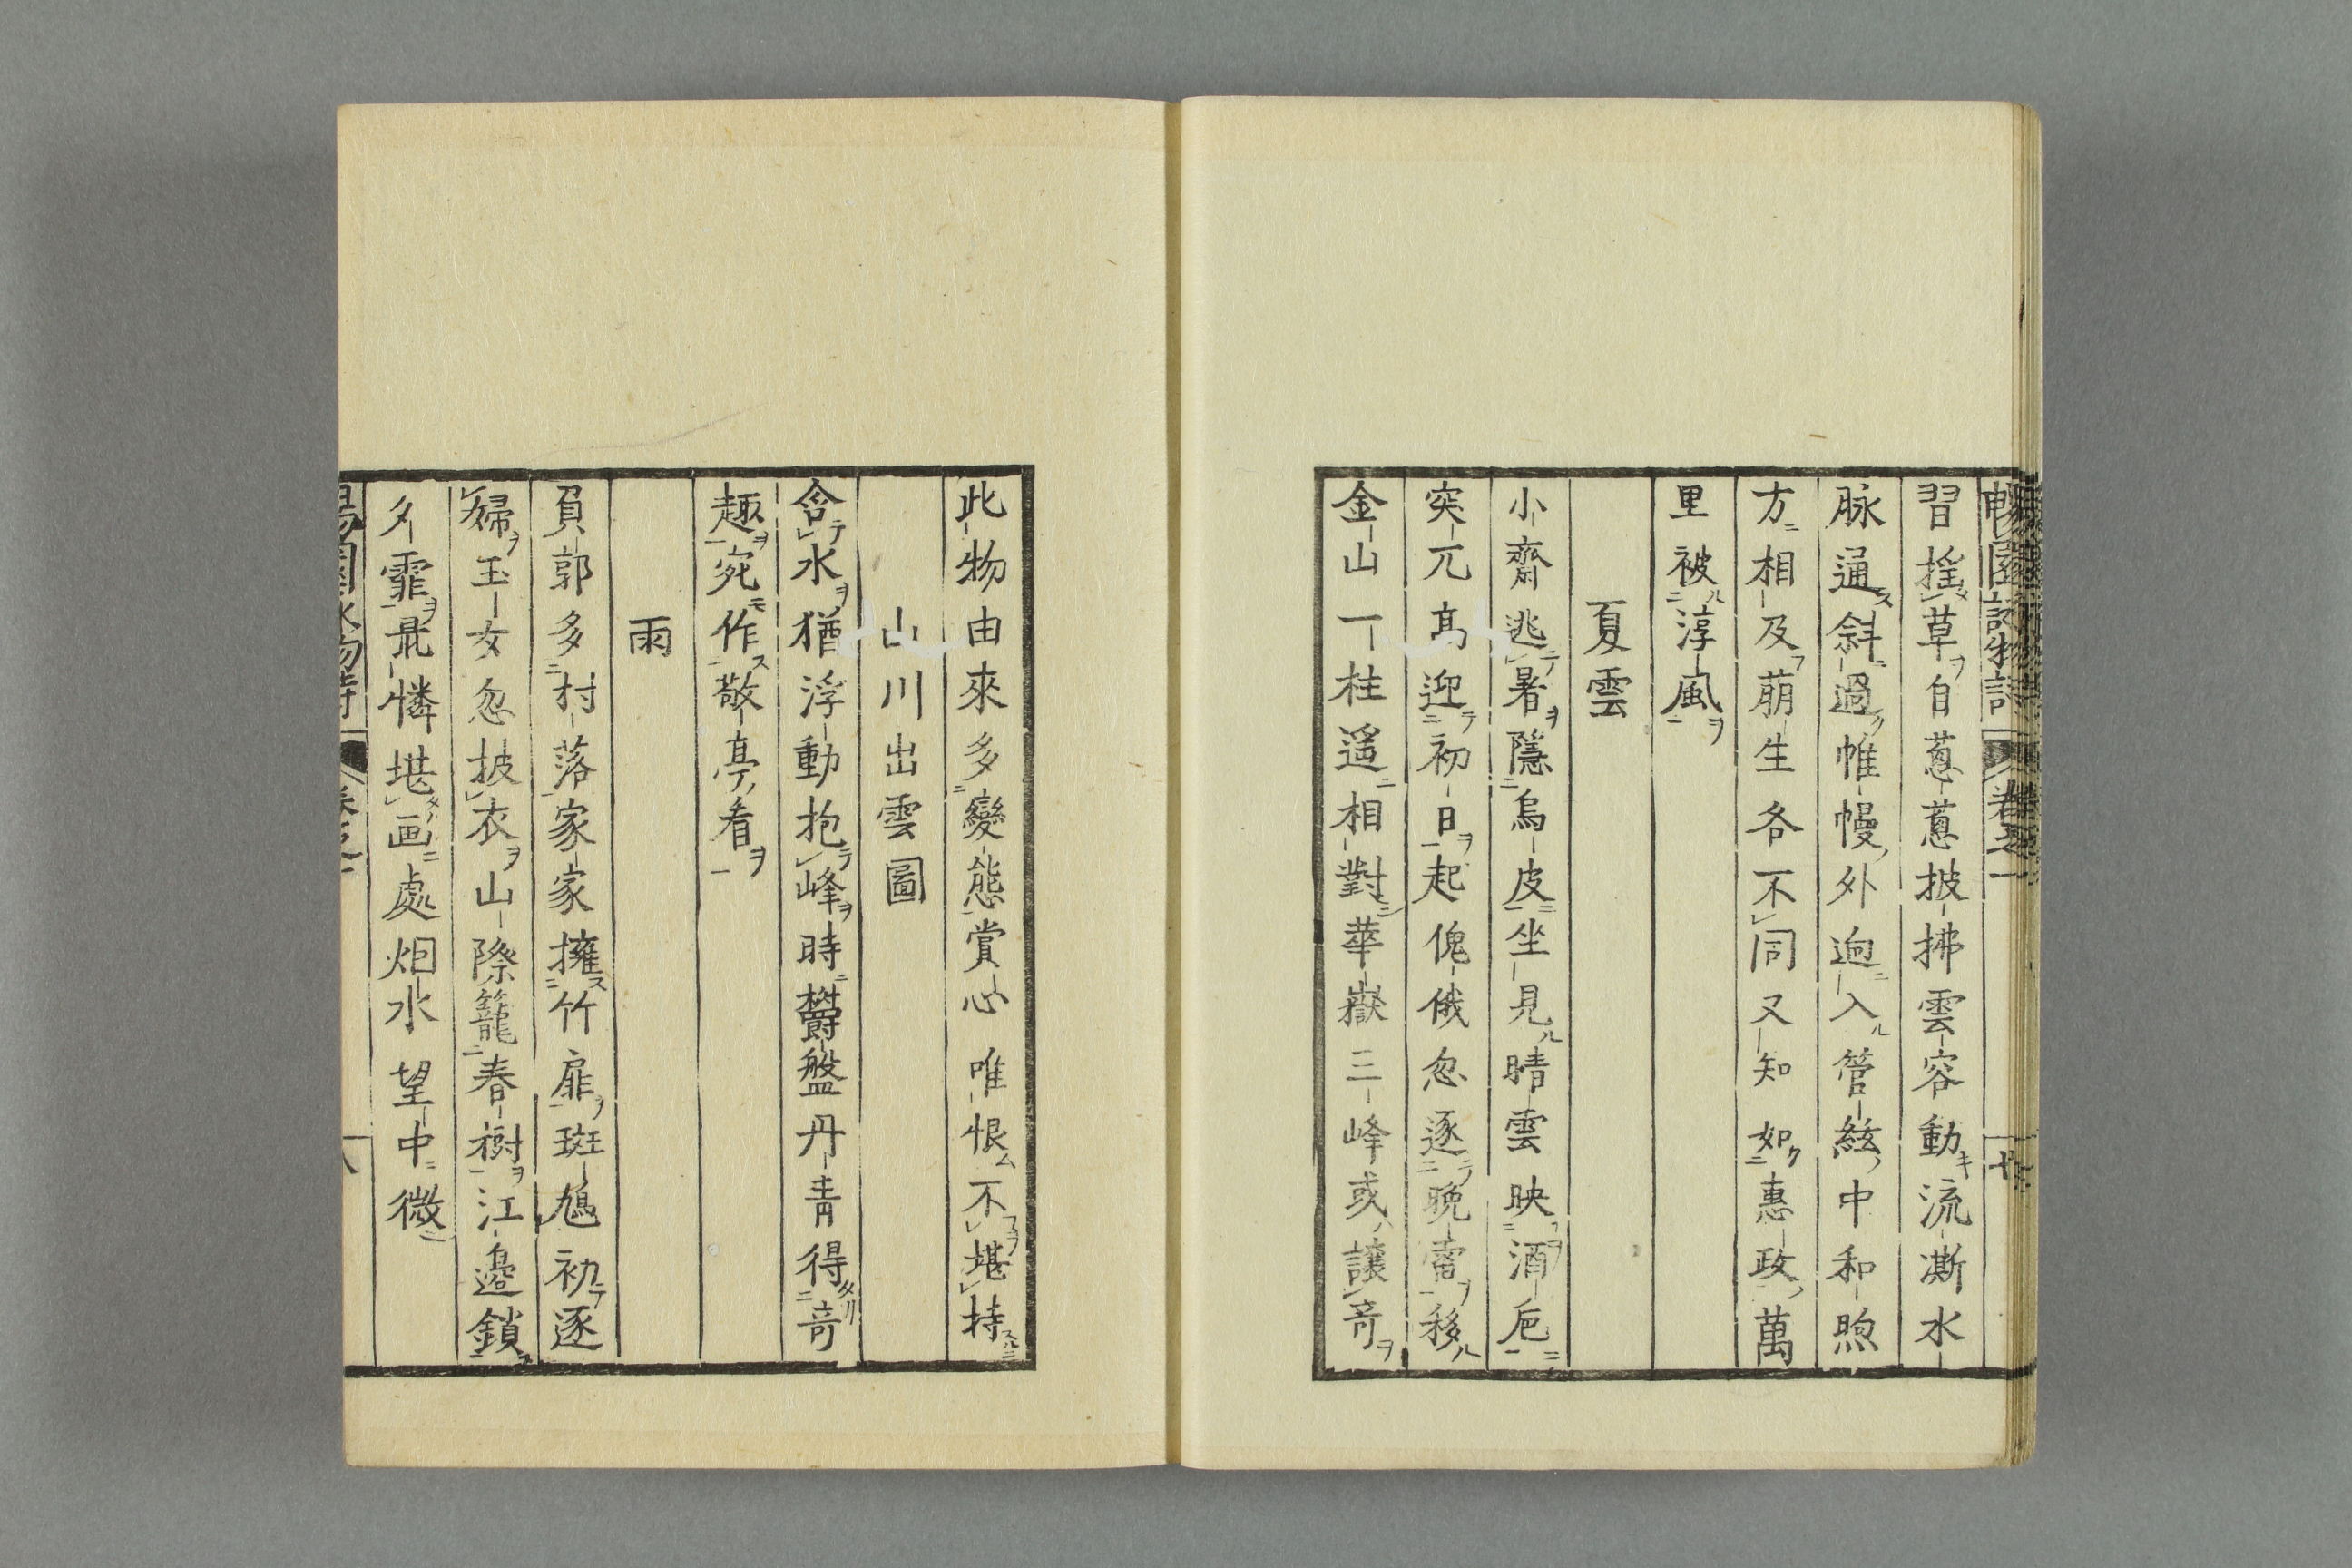 暢園詠物詩 卷之一
習搖草自蔥蔥披拂雲容動流澌水
脉通斜過帷幔外迥入管絃中和煦
方相及萠生各不同又知如惠政萬
里被淳風
夏雲
小齋逃暑隱烏皮坐見晴雲映酒卮
突兀髙迎初日起傀俄忽逐晩雷移
金山一柱遥相對華嶽三峰或讓竒
此物由來多變態賞心唯恨不堪持
山川出雲圖
含水猶浮動抱峰時欝盤丹青得竒
趣宛作敬亭看
雨
負郭多村落家家擁竹扉斑鳩初逐
婦玉女忽披衣山際籠春樹江邉鎖
夕霏最憐堪画處烟水望中微
暢園詠物詩 卷之一 十八